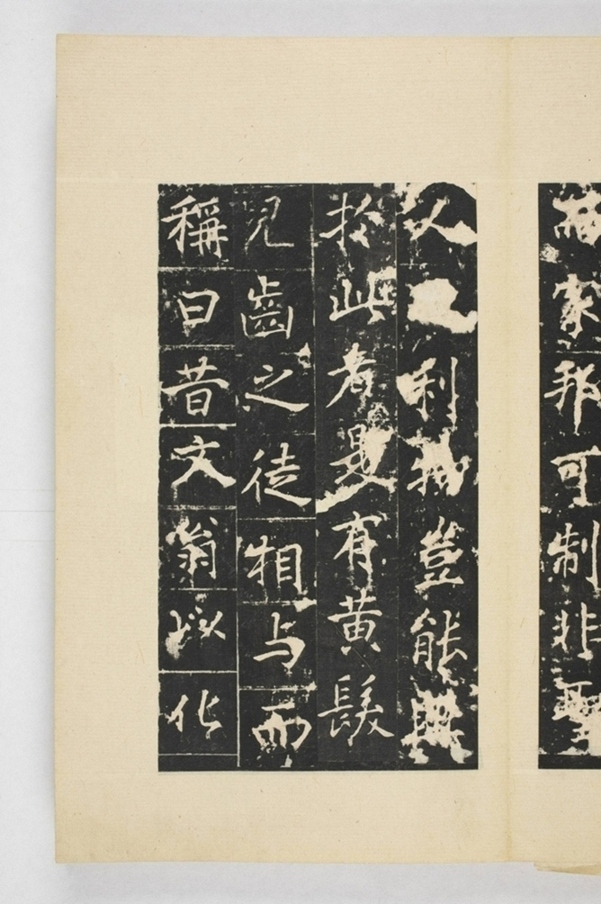 家邦可制非聖
人利物豈能與
於此者是有黃髮
兒齒之徒相与而
稱曰昔文翁以化